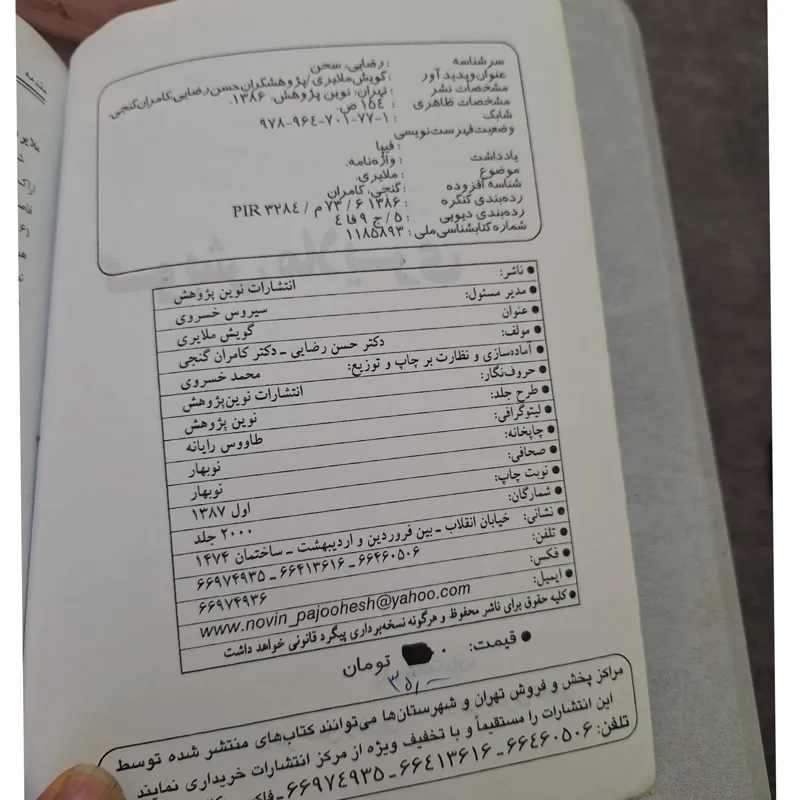 مقدمه
سرشناسه : رضایی، سخن
عنوان‌وپدیدآور : گویش ملایری/پژوهشگران‌حسن رضایی‌کامران‌گنجی.
مشخصات نشر : تهران: نوین پژوهش، ۱۳۸۶.
مشخصات ظاهری : ۱۵۴ ص.
شابک : ۹۷۸-۹۶۴-۷۰۱-۷۷-۱
وضعیت‌فهرست‌نویسی
: فیپا
یادداشت : واژه‌نامه.
موضوع : ملایری.
شناسه افزوده : گنجی، کامران
رده‌بندی کنگره : PIR ۳۲۸۴ / م ۷۳/ ۶ ۱۳۸۶
رده‌بندی دیویی : ۵/ ج ۹ فا ٤
شماره کتابشناسی‌ملی : ۱۱۸۵۸۹۳
● ناشر: انتشارات نوین پژوهش
● مدیر مسئول: سیروس خسروی
● عنوان گویش ملایری
● مولف: دکتر حسن رضایی ـ دکتر کامران گنجی
● آماده‌سازی و نظارت بر چاپ و توزیع: محمد خسروی
● حروف‌نگار: انتشارات نوین‌پژوهش
● طرح جلد: نوین پژوهش
● لیتوگرافی: طاووس رایانه
● چاپخانه: نوبهار
● صحافی: نوبهار
● نوبت چاپ: اول ۱۳۸۷
● شمارگان: ۲۰۰۰ جلد
● نشانی: خیابان انقلاب ـ بین فروردین و اردیبهشت ـ ساختمان ۱۴۷۴
● تلفن: ۶۶۴۶۰۵۰۶ ـ ۶۶۴۱۳۶۱۶ ـ ۶۶۹۷۴۹۳۵
● فکس: ۶۶۹۷۴۹۳۶
● ایمیل: www.novin_pajoohesh@yahoo.com
● کلیه حقوق برای ناشر محفوظ و هرگونه نسخه‌برداری پیگرد قانونی خواهد داشت
● قیمت: ۰۰ تومان
۳۵/۰۰
مراکز پخش و فروش تهران و شهرستان‌ها می‌توانند کتاب‌های منتشر شده توسط
این انتشارات را مستقیماً و با تخفیف ویژه از مرکز انتشارات خریداری نمایند
تلفن: ۶۶۴۶۰۵۰۶ ـ ۶۶۴۱۳۶۱۶ ـ ۶۶۹۷۴۹۳۵ ـ فاکس